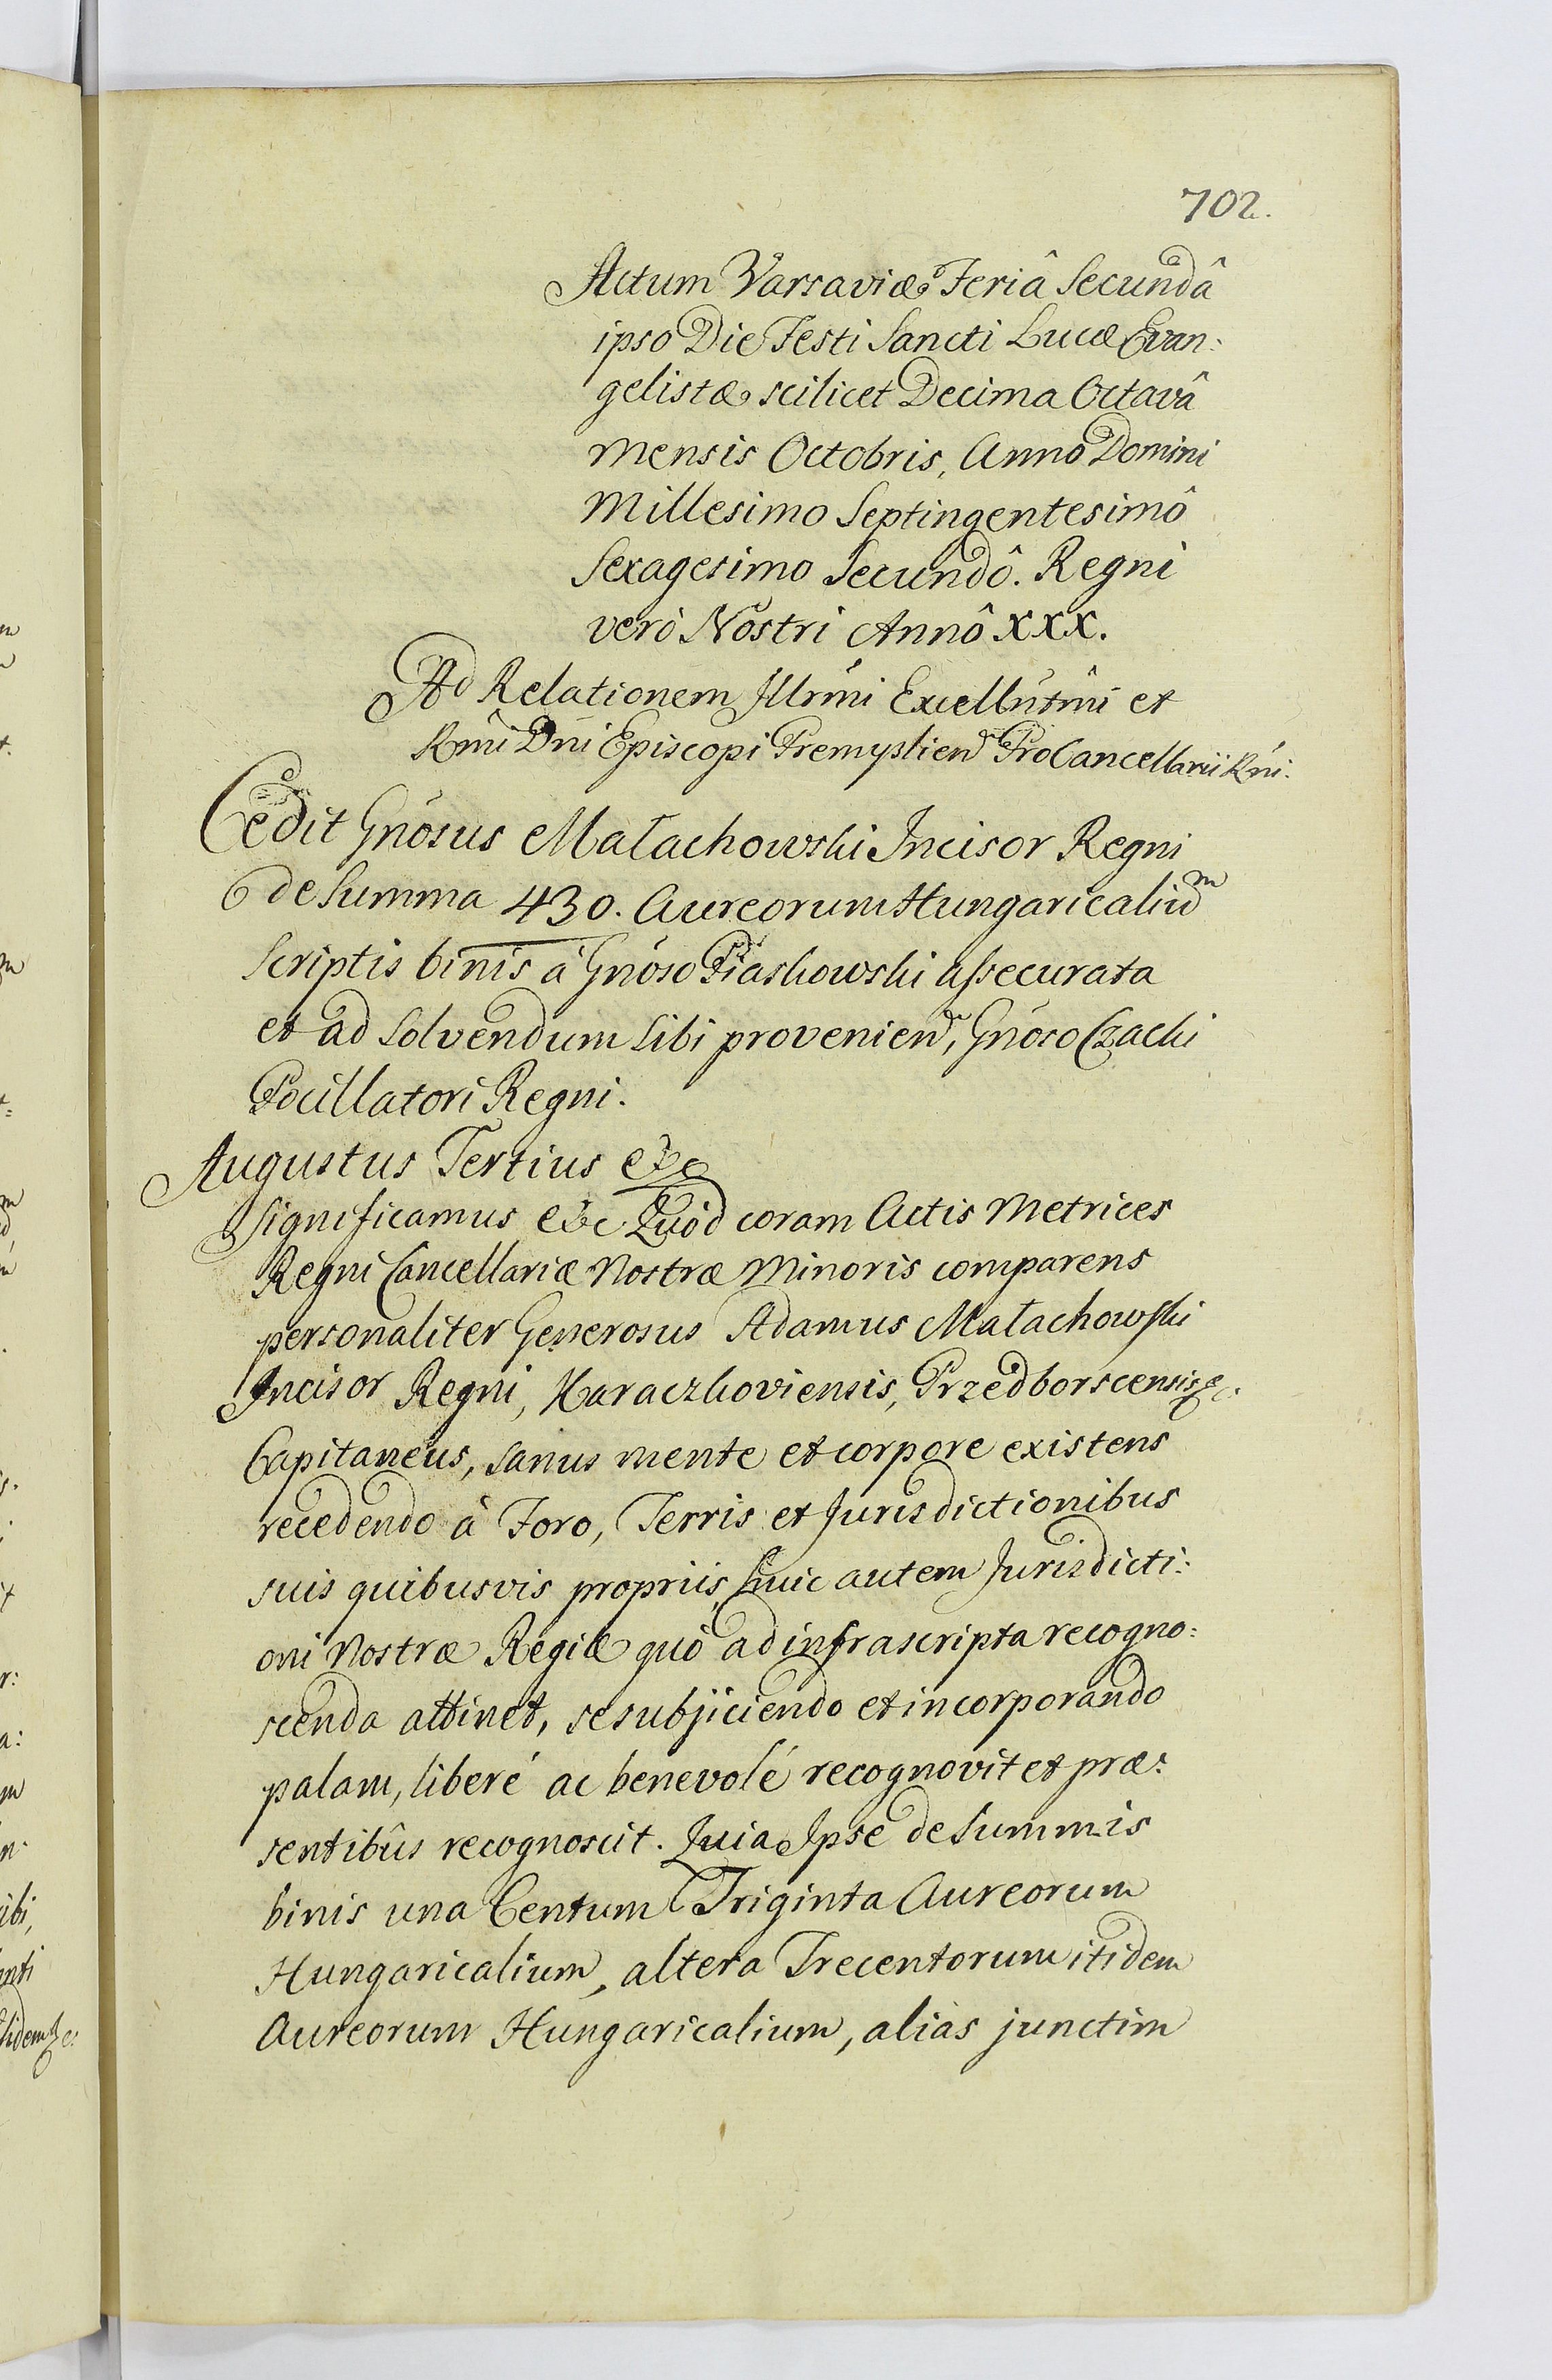 702.
Actum Varsaviæ Feriâ Secundâ
ipso Die Festi Sancti Lucæ Evan:
gelistæ scilicet Decima Octavâ
Mensis Octobris, Anno Domini
Millesimo Septingentesimô
Sexagesimo Secundô. Regni
verò Nostri Annô XXX.
Ad Relationem Illrmi Excellntmi et
Rmi Dni Episcopi Premyslien ProCancellarii Rni.
Cedit Gnosus Małachowski Incisor Regni
de Summa 430. Aureorum Hungaricalium
Scriptis binis à Gnoso Piaskowski assecurata
et ad Solvendum Sibi provenien, Gnoso Czacki
Pocillatori Regni.
Augustus Tertius &c
Significamus &c Quod coram Actis Metrices
Regni Cancellariæ Nostræ Minoris comparens
personaliter Generosus Adamus Małachowski
Incisor Regni, Karaczkoviensis, Przedborscensis &c.
Capitaneus, sanus mente et corpore existens
recedendo à Foro, Terris et Jurisdictionibus
suis quibusvis propriis, huic autem Jurisdicti:
oni Nostræ Regiæ quò ad infrascripta recogno:
scenda attinet, se subjiciendo et incorporando
palam, liberé ac benevolé recognovit et præ:
sentibûs recognoscit. Quia Ipse de Summis
binis una Centum Triginta Aureorum
Hungaricalium, altera Trecentorum itidem
Aureorum Hungaricalium, aliàs junctim